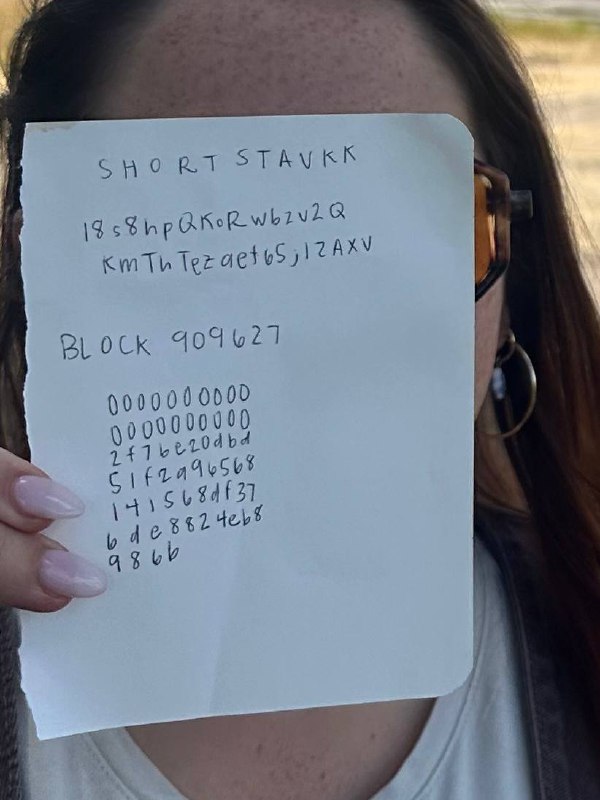 SHORT STAVKK
18s8hpQKoRw6zv2Q
KmThTezaet6Sj12AXV
BLOCK 909627
0000000000
0000000000
2f7be20dbd
51f2a96568
141568df37
bde8824eb8
986b